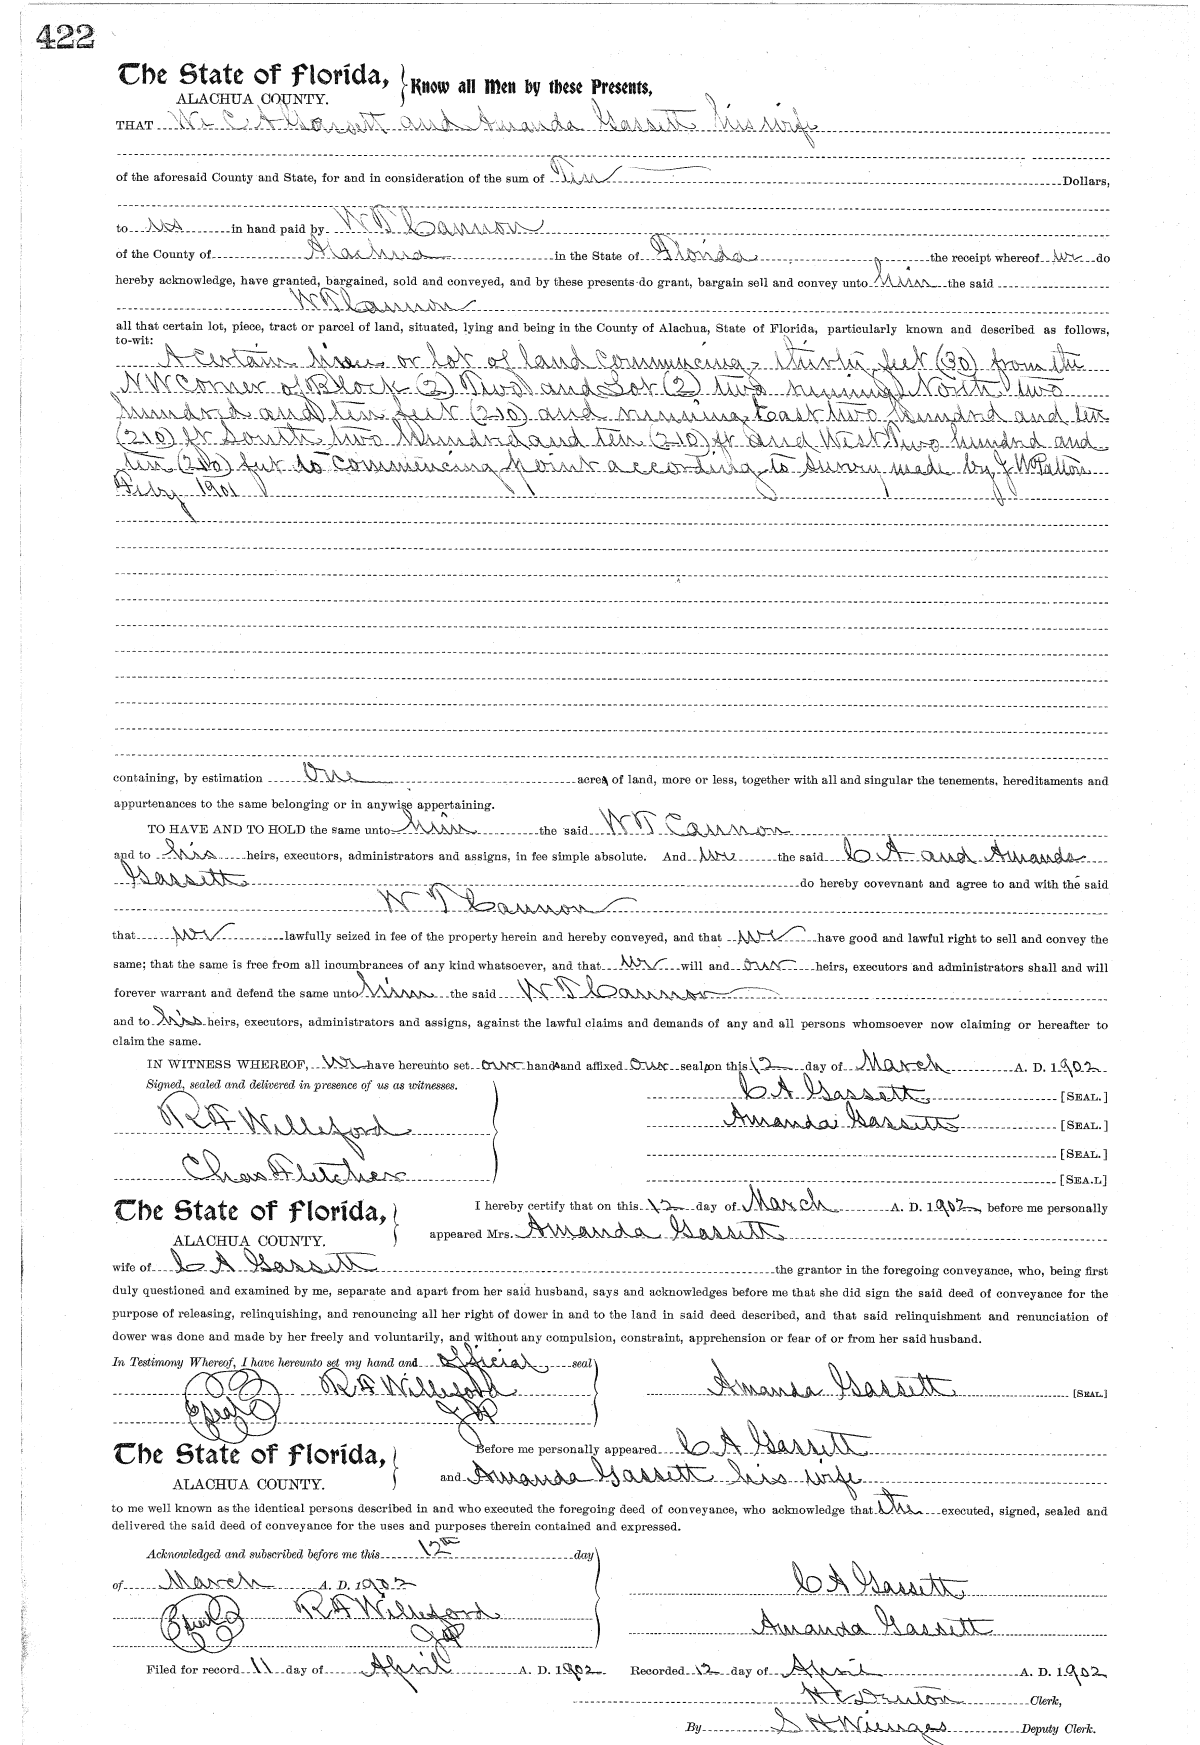 422
The State of Florida, Know all Men by these Presents,
ALACHUA COUNTY.
THAT We C A Gassett and Amanda Gassett his wife
of the aforesaid County and State, for and in consideration of the sum of Ten Dollars,
to us in hand paid by W T Cannon
of the County of Alachua in the State of Florida the receipt whereof we do
hereby acknowledge, have granted, bargained, sold and conveyed, and by these presents do grant, bargain sell and convey unto him the said
W T Cannon
all that certain lot, piece, tract or parcel of land, situated, lying and being in the County of Alachua, State of Florida, particularly known and described as follows,
to-wit:
A certain or lot of land commencing thirty feet (30) from the
N W Corner of Block (2) Two and Lot (2) two running North two
hundred and ten feet (210) and running East two hundred and ten
(210) ft South two hundred and ten (210) ft and West two hundred and
ten (210) to commencing point according to survey made by J W Patton
1901
containing, by estimation One acre, of land, more or less, together with all and singular the tenements, hereditaments and
appurtenances to the same belonging or in anywise appertaining.
TO HAVE AND TO HOLD the same unto him the said W T Cannon
and to his heirs, executors, administrators and assigns, in fee simple absolute. And we the said C A and Amanda
Gassett do hereby covevnant and agree to and with the said
W T Cannon
that we lawfully seized in fee of the property herein and hereby conveyed, and that we have good and lawful right to sell and convey the
same; that the same is free from all incumbrances of any kind whatsoever, and that we will and our heirs, executors and administrators shall and will
forever warrant and defend the same unto him the said W T Cannon
and to his heirs, executors, administrators and assigns, against the lawful claims and demands of any and all persons whomsoever now claiming or hereafter to
claim the same.
IN WITNESS WHEREOF, we have hereunto set our hands and affixed our seal on this 12 day of March A. D. 1902
Signed, sealed and delivered in presence of us as witnesses. C A Gassett [SEAL.]
R A Willeford Amanda Gassett [SEAL.]
[SEAL.]
Chas A Fletcher [SEA.L]
The State of Florida, I hereby certify that on this 12 day of March A. D. 1902 before me personally
ALACHUA COUNTY. appeared Mrs. Amanda Gassett
wife of C A Gassett the grantor in the foregoing conveyance, who, being first
duly questioned and examined by me, separate and apart from her said husband, says and acknowledges before me that she did sign the said deed of conveyance for the
purpose of releasing, relinquishing, and renouncing all her right of dower in and to the land in said deed described, and that said relinquishment and renunciation of
dower was done and made by her freely and voluntarily, and without any compulsion, constraint, apprehension or fear of or from her said husband.
In Testimony Whereof, I have hereunto set my hand and official seal
R A Willeford Amanda Gassett [SEAL]
Seal J P
The State of Florida, Before me personally appeared C A Gassett
ALACHUA COUNTY. and Amanda Gassett his wife
to me well known as the identical persons described in and who executed the foregoing deed of conveyance, who acknowledge that the executed, signed, sealed and
delivered the said deed of conveyance for the uses and purposes therein contained and expressed.
Acknowledged and subscribed before me this 12th day
of March A. D. 1902 C A Gassett
Seal R A Willeford
J P Amanda Gassett
Filed for record 11 day of April A. D. 1902 Recorded 12 day of April A. D. 1902
H C Denton Clerk,
By S H Wienges Deputy Clerk.